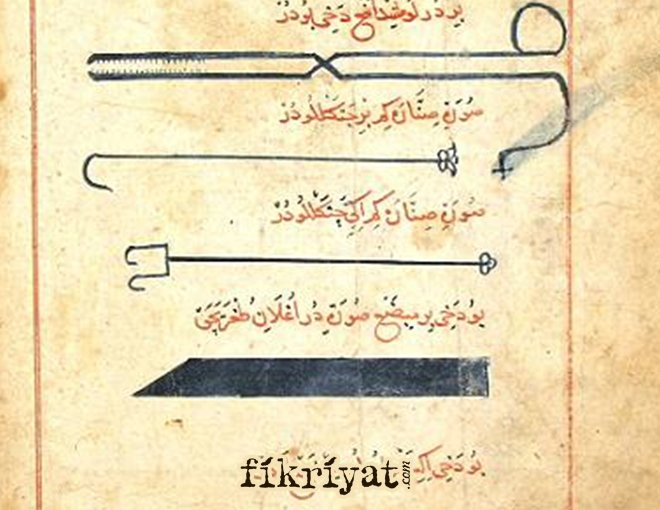 بر درلو شداخ دخی بودر
صورت صنّاره کم بر چنکللودر
صورت صنّاره کم اکی چنکللودر
بو دخی بر مبضع صورتدر اغلان
بو دخی
fikriyat.com